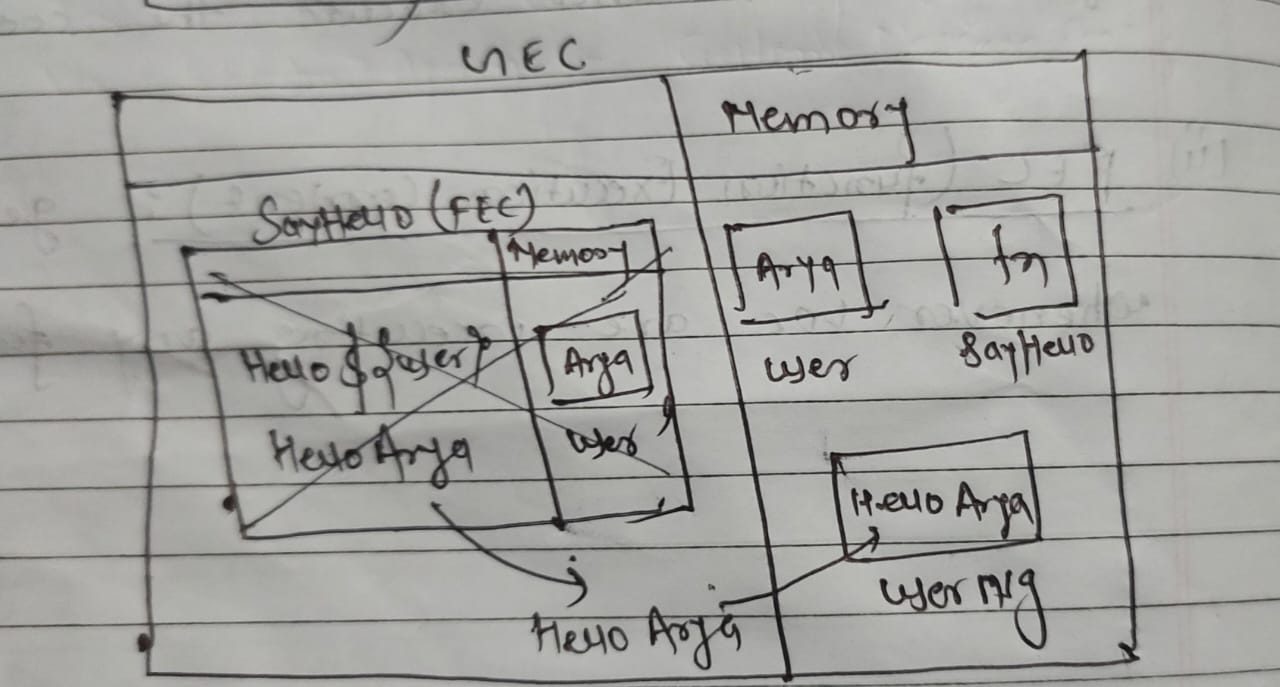 GEC
Memory
SayHello (FEC)
Memory
Hello ${user}
Arya
user
Hello Arya
Arya
user
fn
SayHello
Hello Arya
user Msg
Hello Arya